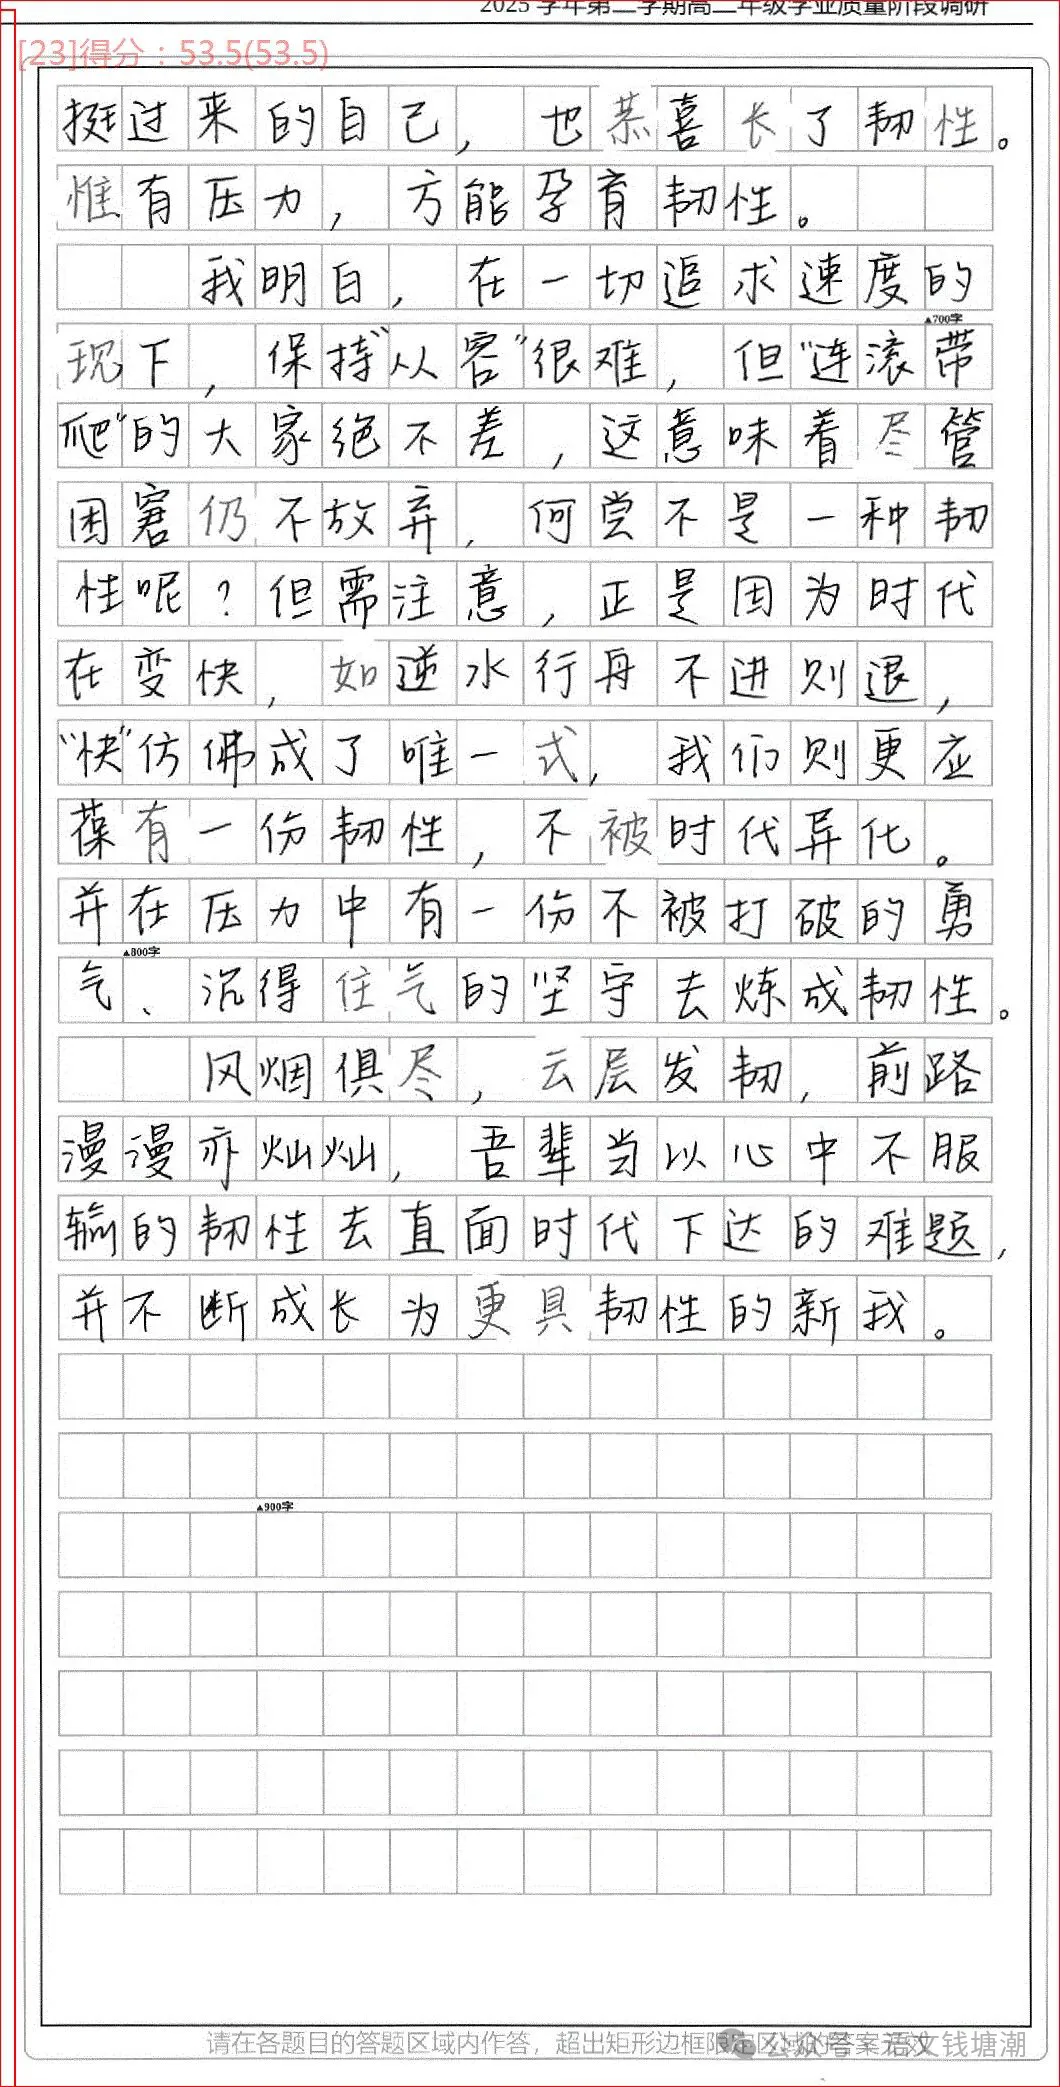 2025学年第二学期高二年级学业质量阶段调研
[23]得分：53.5(53.5)
挺过来的自己，也恭喜长了韧性。
惟有压力，方能孕育韧性。
我明白，在一切追求速度的
▲700字
现下，保持“从容”很难，但“连滚带
爬”的大家绝不差，这意味着尽管
困窘仍不放弃，何尝不是一种韧
性呢？但需注意，正是因为时代
在变快，如逆水行舟不进则退，
“快”仿佛成了唯一式，我们则更应
葆有一份韧性，不被时代异化。
并在压力中有一份不被打破的勇
▲800字
气、沉得住气的坚守去炼成韧性。
风烟俱尽，云层发韧，前路
漫漫亦灿灿，吾辈当以心中不服
输的韧性去直面时代下达的难题，
并不断成长为更具韧性的新我。
▲900字
请在各题目的答题区域内作答，超出矩形边框限定区域的答案无效
公众号 语文钱塘潮